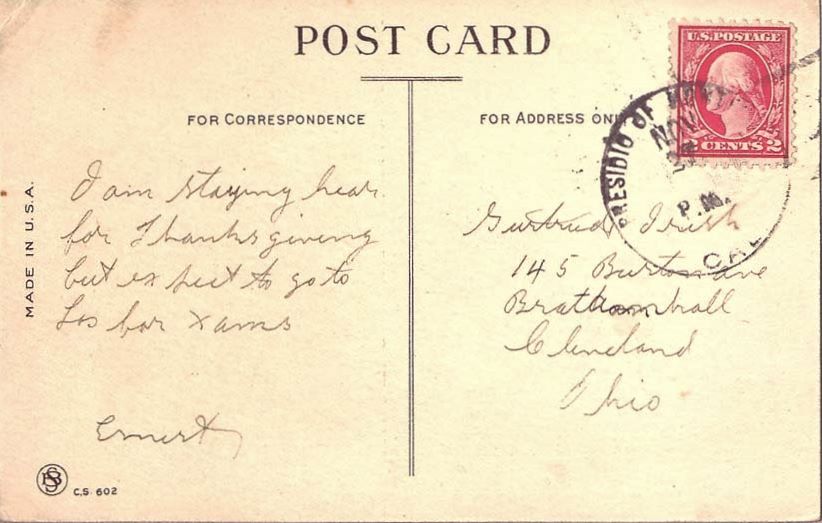 POST CARD
U.S. POSTAGE
2 CENTS 2
PRESIDIO OF
NOV
27
P.M.
CAL
FOR CORRESPONDENCE
FOR ADDRESS ONLY
I am staying hear
for Thanksgiving
but expect to go to
Los for Xams
Ernest
Gertrude Irish
145 Burton ave
Hall
Cleveland
Ohio
MADE IN U.S.A.
C.S. 602